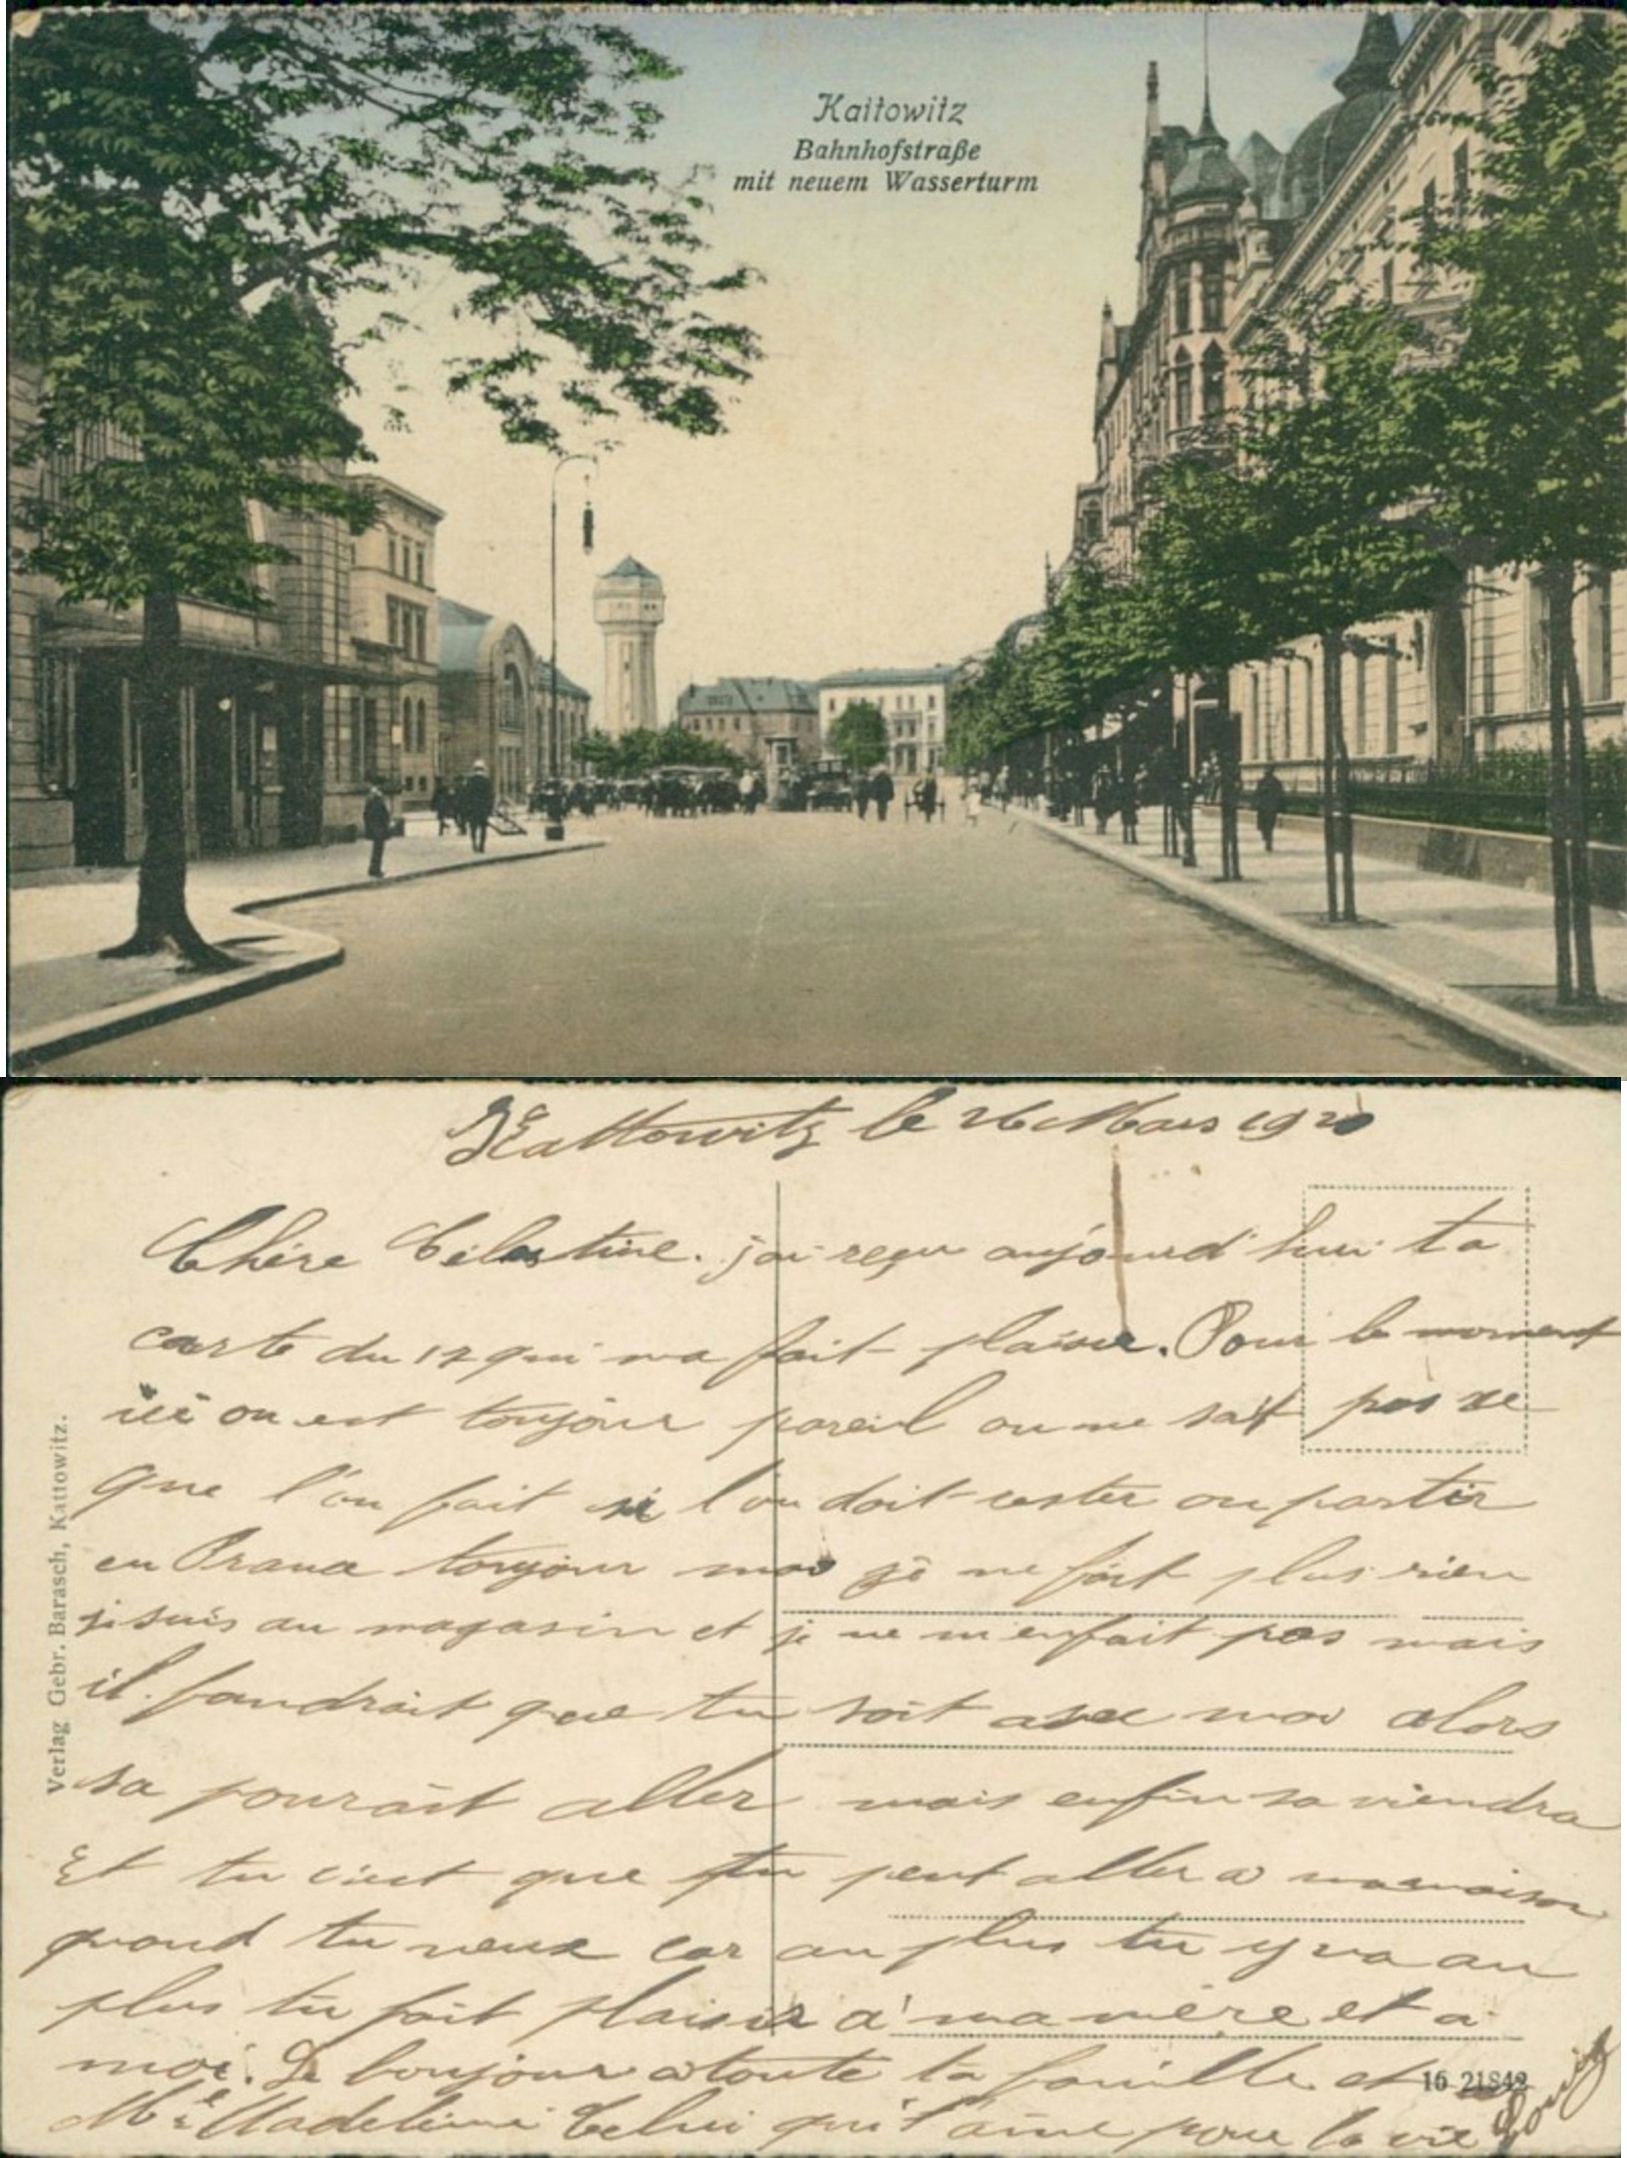 Kattowitz
Bahnhofstraße
mit neuem Wasserturm
Kattowitz le 26 Mars 1920
Chère Célestine. j'ai reçu aujourd'hui ta
carte du 17 qui ma fait plaisir. Pour le moment
ici on est toujour pareil on ne sait pas se
que l'on fait si l'on doit rester ou partir
en France toujour moi je ne fait plus rien
je suis au magasin et je ne m'enfait pas mais
il faudrait que tu soit avec moi alors
sa pourait aller mais enfin sa viendra
Et tu c'est que tu peut aller a ma maison
quand tu veux car au plus tu y va au
plus tu fait plaisir a' ma mère et a
moi. Le bonjour a toute ta famille et
Mme Madeleine Celui qui t'aime pour la vie
Louis
Verlag Gebr. Barasch, Kattowitz.
16 21842